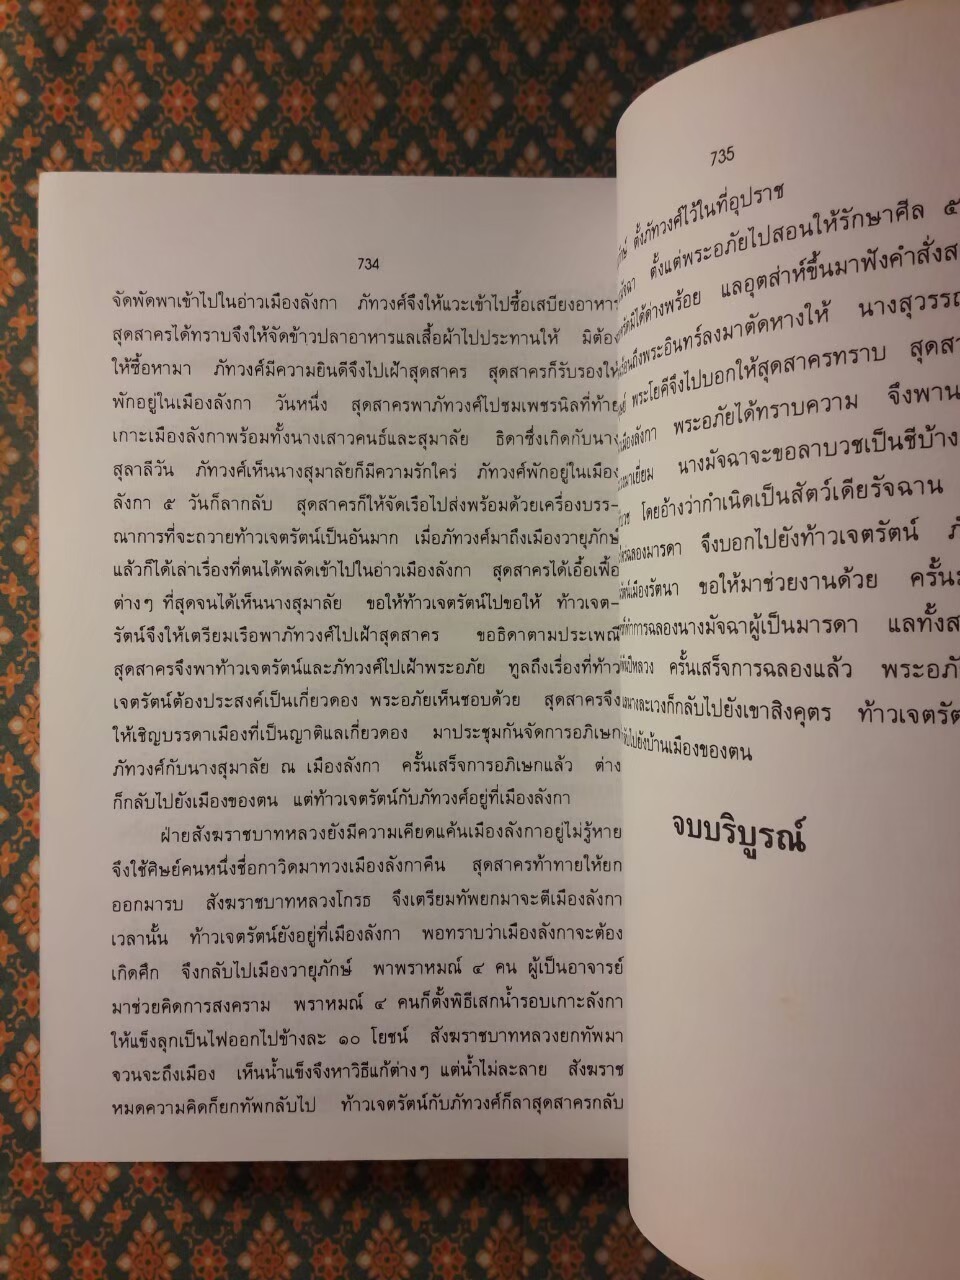 734
จัดพัดพาเข้าไปในอ่าวเมืองลังกา ภัทวงศ์จึงให้แวะเข้าไปซื้อเสบียงอาหาร
สุดสาครได้ทราบจึงให้จัดข้าวปลาอาหารแลเสื้อผ้าไปประทานให้ มิต้อง
ให้ซื้อหามา ภัทวงศ์มีความยินดีจึงไปเฝ้าสุดสาคร สุดสาครก็รับรองให้
พักอยู่ในเมืองลังกา วันหนึ่ง สุดสาครพาภัทวงศ์ไปชมเพชรนิลที่ท้าย
เกาะเมืองลังกาพร้อมทั้งนางเสาวคนธ์และสุมาลัย ธิดาซึ่งเกิดกับนาง
สุลาลีวัน ภัทวงศ์เห็นนางสุมาลัยก็มีความรักใคร่ ภัทวงศ์พักอยู่ในเมือง
ลังกา ๕ วันก็ลากลับ สุดสาครก็ให้จัดเรือไปส่งพร้อมด้วยเครื่องบรร-
ณาการที่จะถวายท้าวเจตรัตน์เป็นอันมาก เมื่อภัทวงศ์มาถึงเมืองวายุภักษ์
แล้วก็ได้เล่าเรื่องที่ตนได้พลัดเข้าไปในอ่าวเมืองลังกา สุดสาครได้เอื้อเฟื้อ
ต่างๆ ที่สุดจนได้เห็นนางสุมาลัย ขอให้ท้าวเจตรัตน์ไปขอให้ ท้าวเจต-
รัตน์จึงให้เตรียมเรือพาภัทวงศ์ไปเฝ้าสุดสาคร ขอธิดาตามประเพณี
สุดสาครจึงพาท้าวเจตรัตน์และภัทวงศ์ไปเฝ้าพระอภัย ทูลถึงเรื่องที่ท้าว
เจตรัตน์ต้องประสงค์เป็นเกี่ยวดอง พระอภัยเห็นชอบด้วย สุดสาครจึง
ให้เชิญบรรดาเมืองที่เป็นญาติแลเกี่ยวดอง มาประชุมกันจัดการอภิเษก
ภัทวงศ์กับนางสุมาลัย ณ เมืองลังกา ครั้นเสร็จการอภิเษกแล้ว ต่าง
ก็กลับไปยังเมืองของตน แต่ท้าวเจตรัตน์กับภัทวงศ์อยู่ที่เมืองลังกา
ฝ่ายสังฆราชบาทหลวงยังมีความเคียดแค้นเมืองลังกาอยู่ไม่รู้หาย
จึงใช้ศิษย์คนหนึ่งชื่อกาวิดมาทวงเมืองลังกาคืน สุดสาครท้าทายให้ยก
ออกมารบ สังฆราชบาทหลวงโกรธ จึงเตรียมทัพยกมาจะตีเมืองลังกา
เวลานั้น ท้าวเจตรัตน์ยังอยู่ที่เมืองลังกา พอทราบว่าเมืองลังกาจะต้อง
เกิดศึก จึงกลับไปเมืองวายุภักษ์ พาพราหมณ์ ๔ คน ผู้เป็นอาจารย์
มาช่วยคิดการสงคราม พราหมณ์ ๔ คนก็ตั้งพิธีเสกน้ำรอบเกาะลังกา
ให้แข็งลุกเป็นไฟออกไปข้างละ ๑๐ โยชน์ สังฆราชบาทหลวงยกทัพมา
จวนจะถึงเมือง เห็นน้ำแข็งจึงหาวิธีแก้ต่างๆ แต่น้ำไม่ละลาย สังฆราช
หมดความคิดก็ยกทัพกลับไป ท้าวเจตรัตน์กับภัทวงศ์ก็ลาสุดสาครกลับ
735
ตั้งภัทวงศ์ไว้ในที่อุปราช
ตั้งแต่พระอภัยไปสอนให้รักษาศีล ๕
มิได้ด่างพร้อย แลอุตส่าห์ขึ้นมาฟังคำสั่งส
ถึงพระอินทร์ลงมาตัดหางให้ นางสุวรรณ
พระโยคีจึงไปบอกให้สุดสาครทราบ สุดสา
เมืองลังกา พระอภัยได้ทราบความ จึงพาน
มาเยี่ยม นางมัจฉาจะขอลาบวชเป็นชีบ้าง
โดยอ้างว่ากำเนิดเป็นสัตว์เดียรัจฉาน
ฉลองมารดา จึงบอกไปยังท้าวเจตรัตน์ ภั
เมืองรัตนา ขอให้มาช่วยงานด้วย ครั้น
ทำการฉลองนางมัจฉาผู้เป็นมารดา แลทั้งส
ปีหลวง ครั้นเสร็จการฉลองแล้ว พระอภั
นางละเวงก็กลับไปยังเขาสิงคุตร ท้าวเจตรัต
ไปยังบ้านเมืองของตน
จบบริบูรณ์